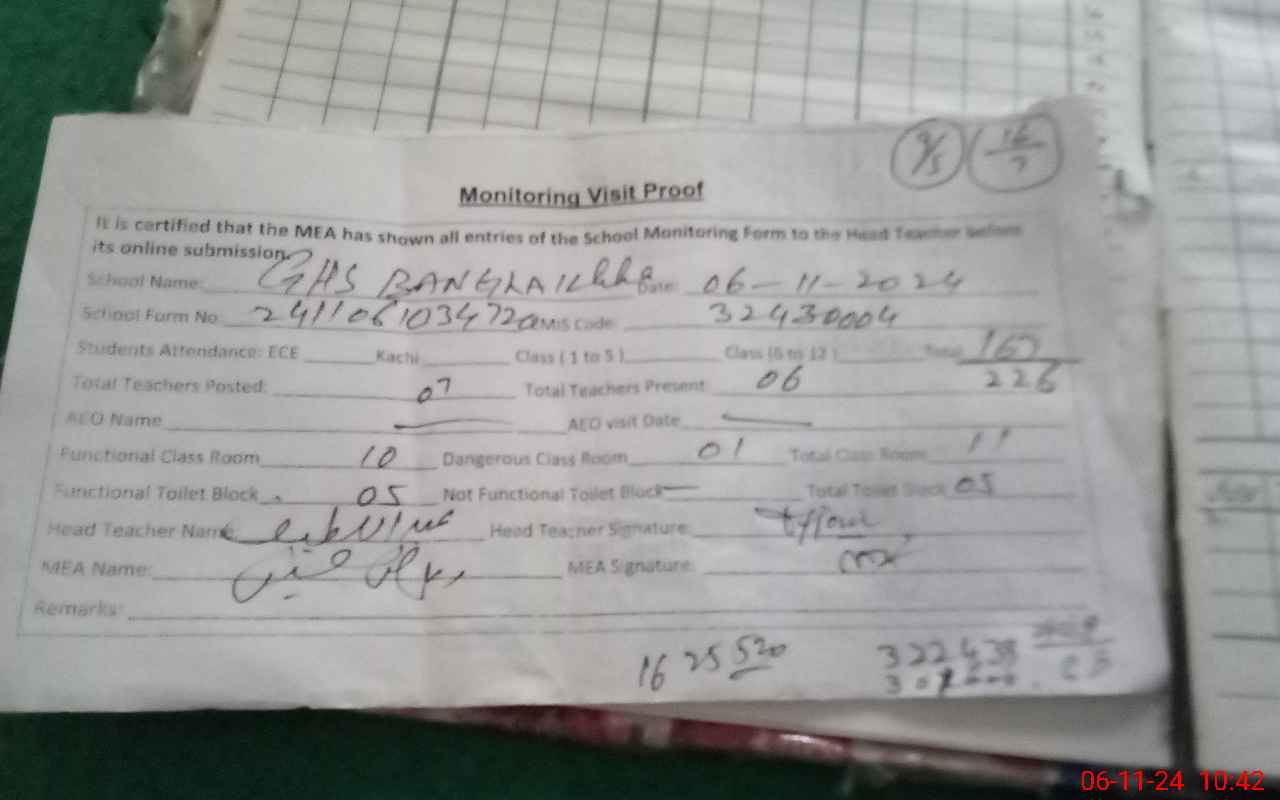 9/5 16/7
Monitoring Visit Proof
It is certified that the MEA has shown all entries of the School Monitoring Form to the Head Teacher before
its online submission.
School Name: GHS BANGLA Date: 06-11-2024
School Form No. EMIS Code: 32430004
Students Attendance: ECE Kachi Class (1 to 5) Class (6 to 12) Total
226
Total Teachers Posted: 07 Total Teachers Present: 06
AEO Name — AEO visit Date —
Functional Class Room 10 Dangerous Class Room 01 Total Class Room 11
Functional Toilet Block 05 Not Functional Toilet Block — Total Toilet Block 05
Head Teacher Name: عبداللطیف Head Teacher Signature:
MEA Name: MEA Signature:
Remarks:
1625520
06-11-24 10:42